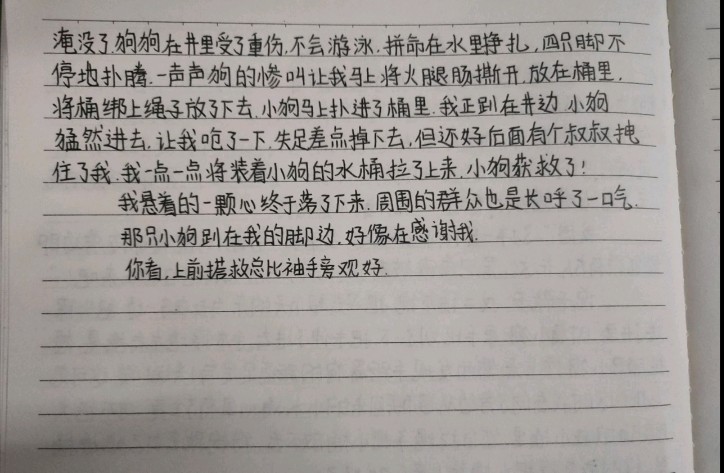 淹没了.狗狗在井里受了重伤,不会游泳.拼命在水里挣扎,四只脚不
停地扑腾.一声声狗的惨叫让我马上将火腿肠撕开,放在桶里.
将桶绑上绳子放了下去,小狗马上扑进了桶里.我正趴在井边,小狗
猛然进去,让我呛了一下,失足差点掉下去,但还好后面有个叔叔拽
住了我.我一点一点将装着小狗的水桶拉了上来,小狗获救了!
我悬着的一颗心终于落了下来.周围的群众也是长呼了一口气.
那只小狗趴在我的脚边,好像在感谢我.
你看,上前搭救总比袖手旁观好.